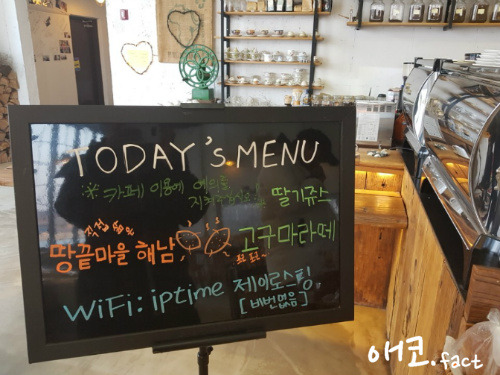 TODAY's MENU
※ 카페 이용에 예의를
지켜주세요
딸기쥬스
직접
땅끝마을 해남
고구마라떼
WiFi: iptime 제이로스팅
[비번없음]
애코.fact